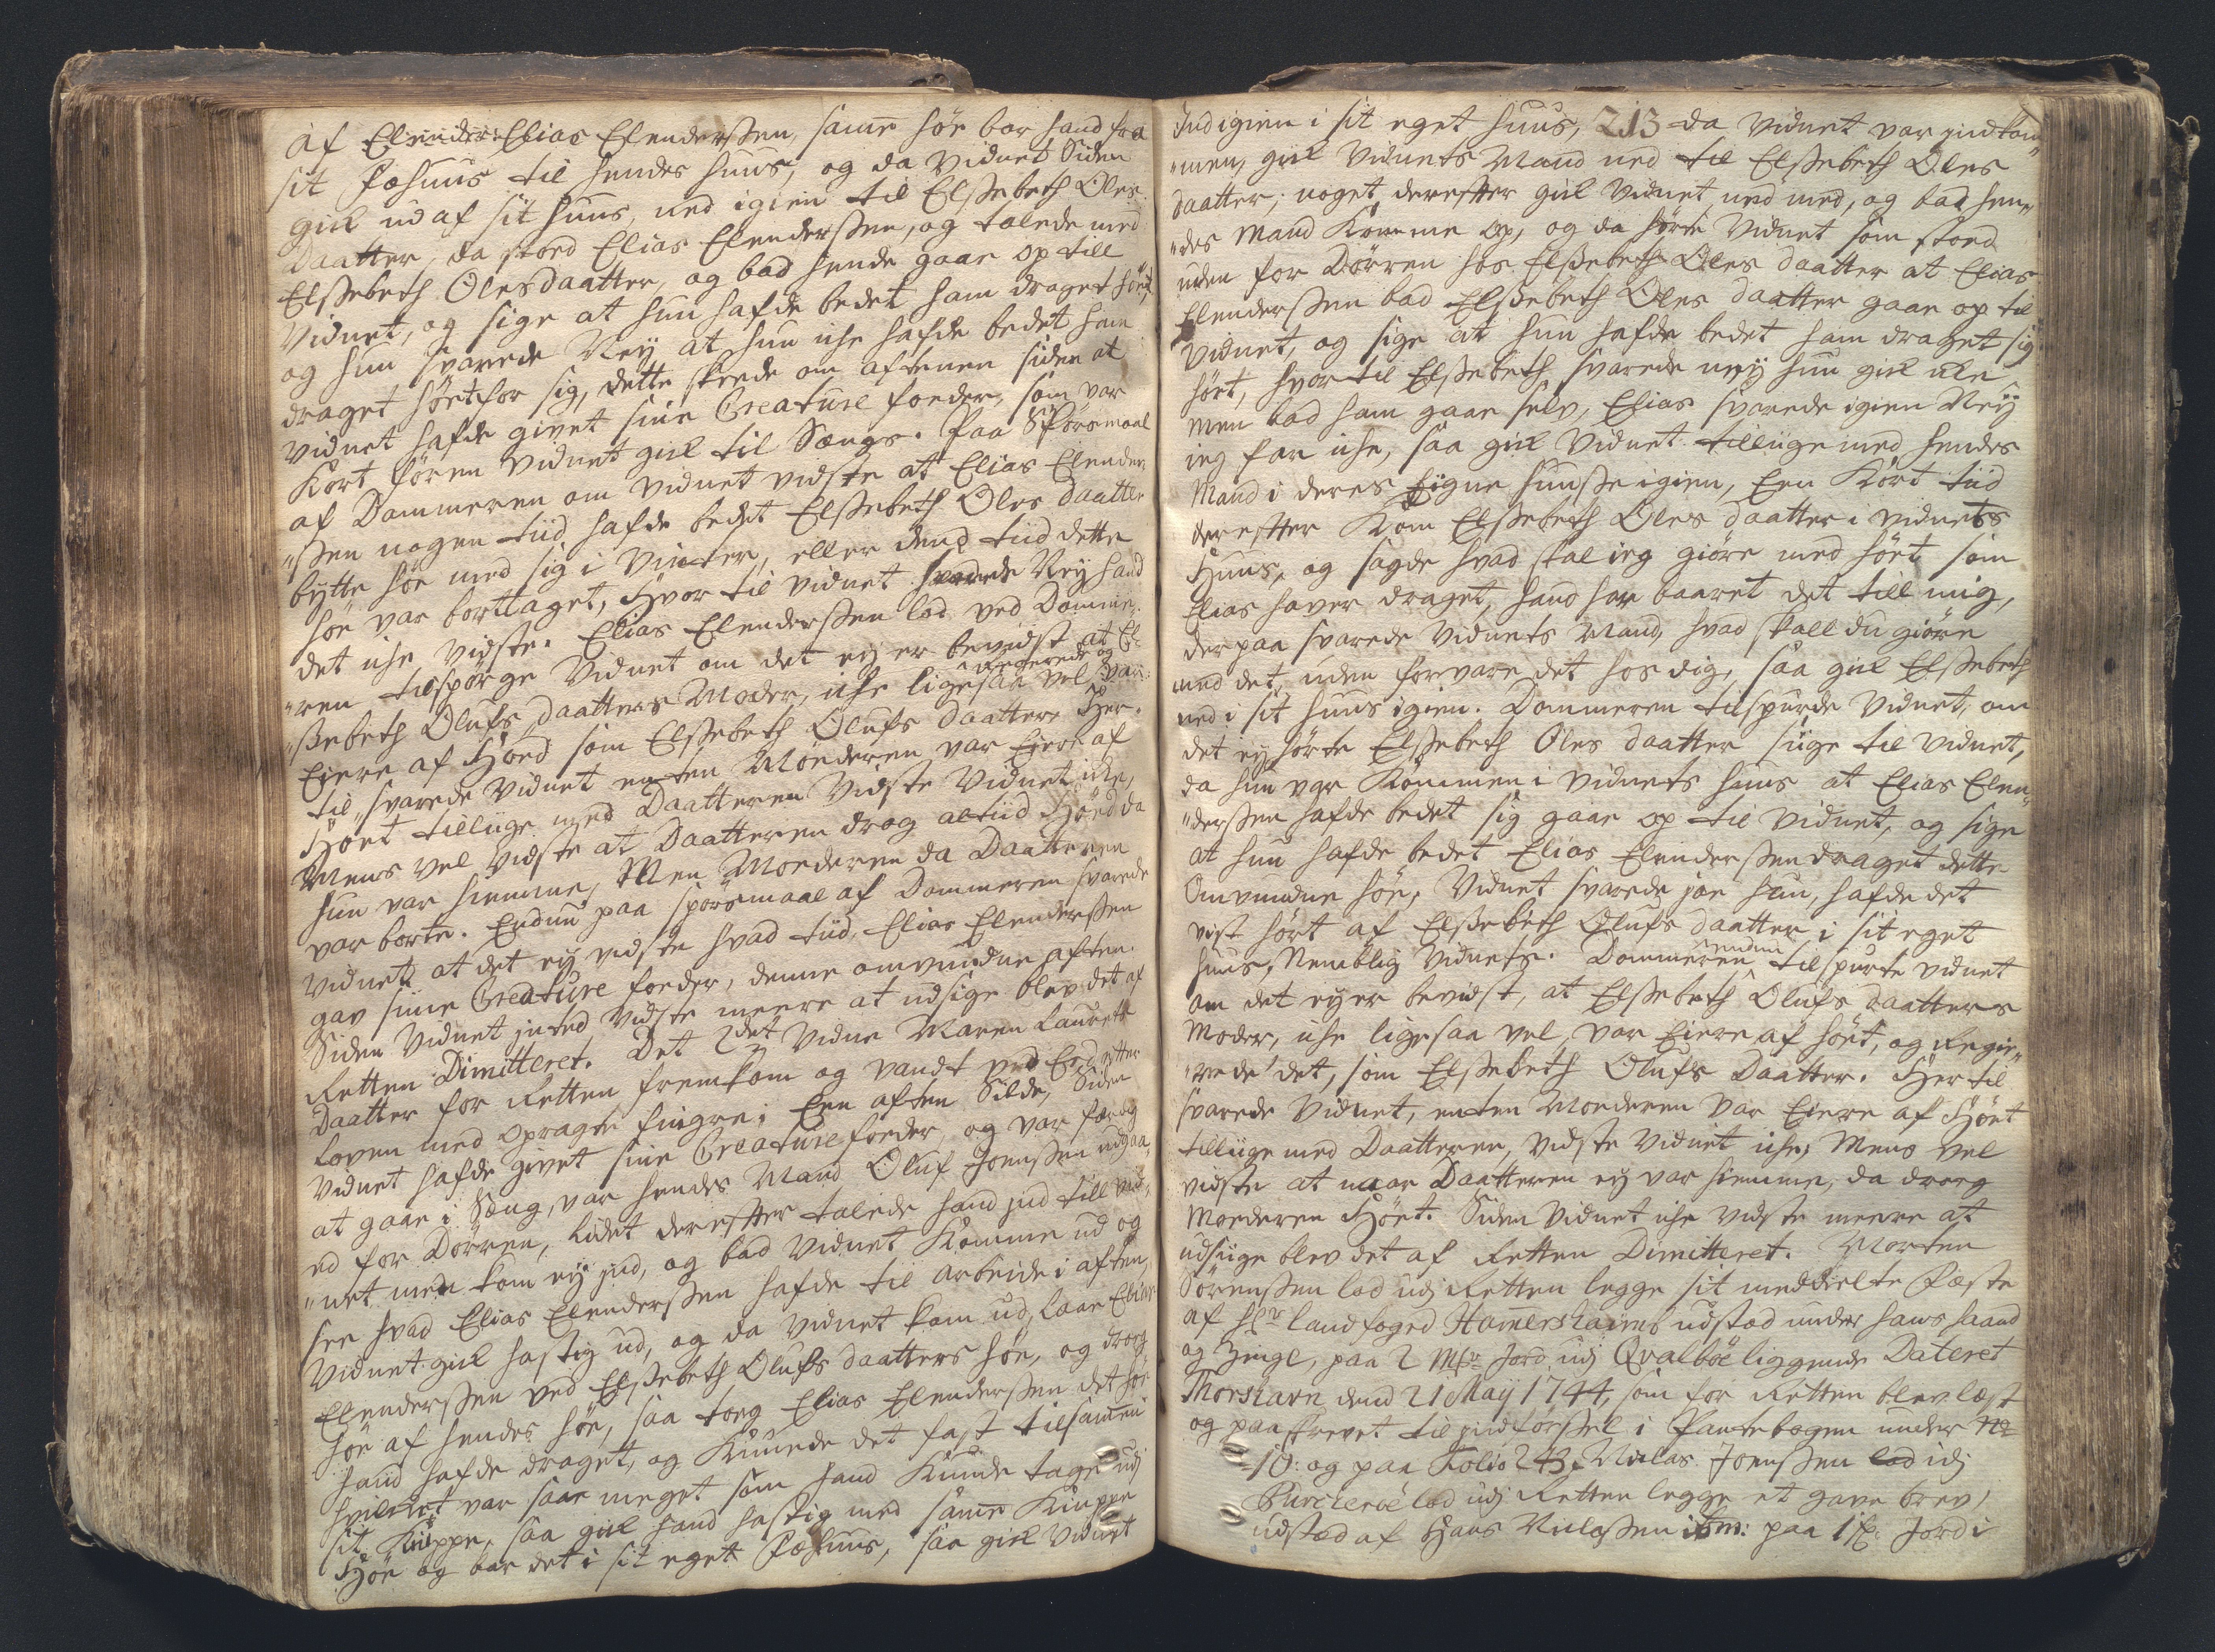 af Elias Elenderßen, same höe bar hand fra
sit Fæhuus til hendes huus, og da vidnet Siden
gik ud af sit huus, ned igien til Elßebeth Oles
Daatter, da stoed Elias Elenderßen, og talede med
Elßebeth Olesdaatter, og bad hende gaae op till
Vidnet, og sige at hun hafde bedet ham draget höet
og hun svarede Ney at hun iche hafde bedet ham
draget höet for sig, dette skeede om aftenen siden at
vidnet hafde givet sine Creature foeder, som var
Kort fören vidnet gik til Sængs. Paa Spörsmaal
af Dommeren om vidnet vidste at Elias Elender
"ßen nogen tiid hafde bedet Elßebeth Oles daatter
bytte höe med sig i Vinter, eller dend tiid dette
höe var borttaget, Hvor til vidnet svarede Ney hand
det iche vidste. Elias Elenderßen lod ved Domme-
"ren tilspörge Vidnet om det ey er bevidst at El-
Regerede og
"ßebeth Olufs daatters Moder, iche ligesaa vel var
Ejere af Höed som Elßebeth Olufs daatter, Her-
til svarede vidnet enten Moederen var Ejere af
Höet tilliige med Daatteren Vidste Vidnet icke,
Mens vel vidste at Daatteren drog altiid Höed da
hun var hiemme, Men Moederen da Daatteren
var borte. Endnu paa spörsmaal af Dommeren svarede
vidnet at det ey vidste hvad tiid Elias Elenderßen
gav sine Creature foeder, denne omvundne aften.
Siden Vidnet inted vidste meere at udsige blev det af
Retten Dimitteret. Det 2det Vidne Maren Lauretz
Daatter for Retten fremkom og vandt ved Eed efter
Loven med opragte fingre; Een aften Silde, Siden
vidnet hafde givet sine Creature foeder, og var færdig
at gaae i Sæng, var hendes Mand Oluf Joenßen udgaa-
ed for Dörren, lidet derefter talede hand ind till vid-
"net men kom ey ind, og bad vidnet Komme ud og
see hvad Elias Elenderßen hafde til arbeide i aften,
Vidnet gik hastig ud, og da vidnet kom ud, laae Elias
Elenderßen ved Elßebeth Olufs daatters höe, og droeg
höe af hendes höe, saa toeg Elias Elenderßen det höe
hand hafde draget, og Knuede det fast tilsamen
hvilket var saae meget som hand Kunde tage udi
sit Knippe, saa gik hand hastig med samme Knippe
Höe og bar det i sit eget Fæhuus, saa gik vidnet
Ind igien i sit eget huus, 213 da vidnet var indkom
"men, gik vidnets Mand ned til Elßebeth Oles
daatter; noget derefter gik vidnet ned med, og bad hen-
"des Mand Komme op, og da hörte vidnet som stoed
uden for Dörren hos Elßebeth Oles daatter at Elias
Elenderßen bad Elßebeth Oles daatter gaae op til
Vidnet, og sige at hun hafde bedet ham draget sig
höet, hvortil Elßebeth svarede ney hun gik icke
men bad ham gaae selv, Elias svarede igien Ney
ieg kan iche, saa gik Vidnet tilliige med hendes
Mand i deres Eigne huuse igien, Een Kort tiid
derefter Kom Elßebeth Oles daatter i vidnets
Huus, og sagde hvad skal ieg giöre med höet som
Elias haver draget, hand har baaret det till mig,
der paa svarede Vidnets Mand, hvad skall du giöre
med det, uden forvare det hos dig, saa gik Elßebeth
ned i sit huus igien. Dommeren tilspurde Vidnet, om
det ey hörte Elßebeth Oles daatter siige til vidnet,
da hun var Kommen i vidnets huus at Elias Elen-
"derßen hafde bedet sig gaae op til vidnet, og sige
at hun hafde bedet Elias Elenderßen draget dette
Omvundne höe, Vidnet svarede jae hun, hafde det
vist hört af Elßebeth Olufs daatter i sit eget
huus, Nemblig vidnets. Dommeren endnu tilspurte vidnet
om det ey er bevidst, at Elßebeth Olufs daatters
Moder, iche ligesaa vel, var Eiere af höet, og Regie-
"rede det, som Elßebeth Olufs Daatter. Her til
svarede Vidnet, enten Moederen var Eiere af Höet
tilliige med Daatteren, vidste vidnet iche, Mens vel
vidste at naar Daatteren ey var hiemme, da droeg
Moederen Höet. Siden Vidnet iche vidste meere at
udsiige blev det af Retten Dimitteret. Morten
Sörenßen lod udi Retten legge sit meddeelte Fæste
af Hr Landfoged Hamershaimb udstæd under hans haand
og Zeigl, paa 2 Mkr Jord udi Qvalböe liggende Dateret
Thorshavn dend 21 Maij 1744, som for Retten blev læst
og paaskrevet til indförßel i Pantebogen under No
=10: og paa Folio 243. Niclas Joenßen lod idi
lod udi Retten legge et gave brev,
udstæd af Hans Niclaßen ibm: paa 1 Jord i